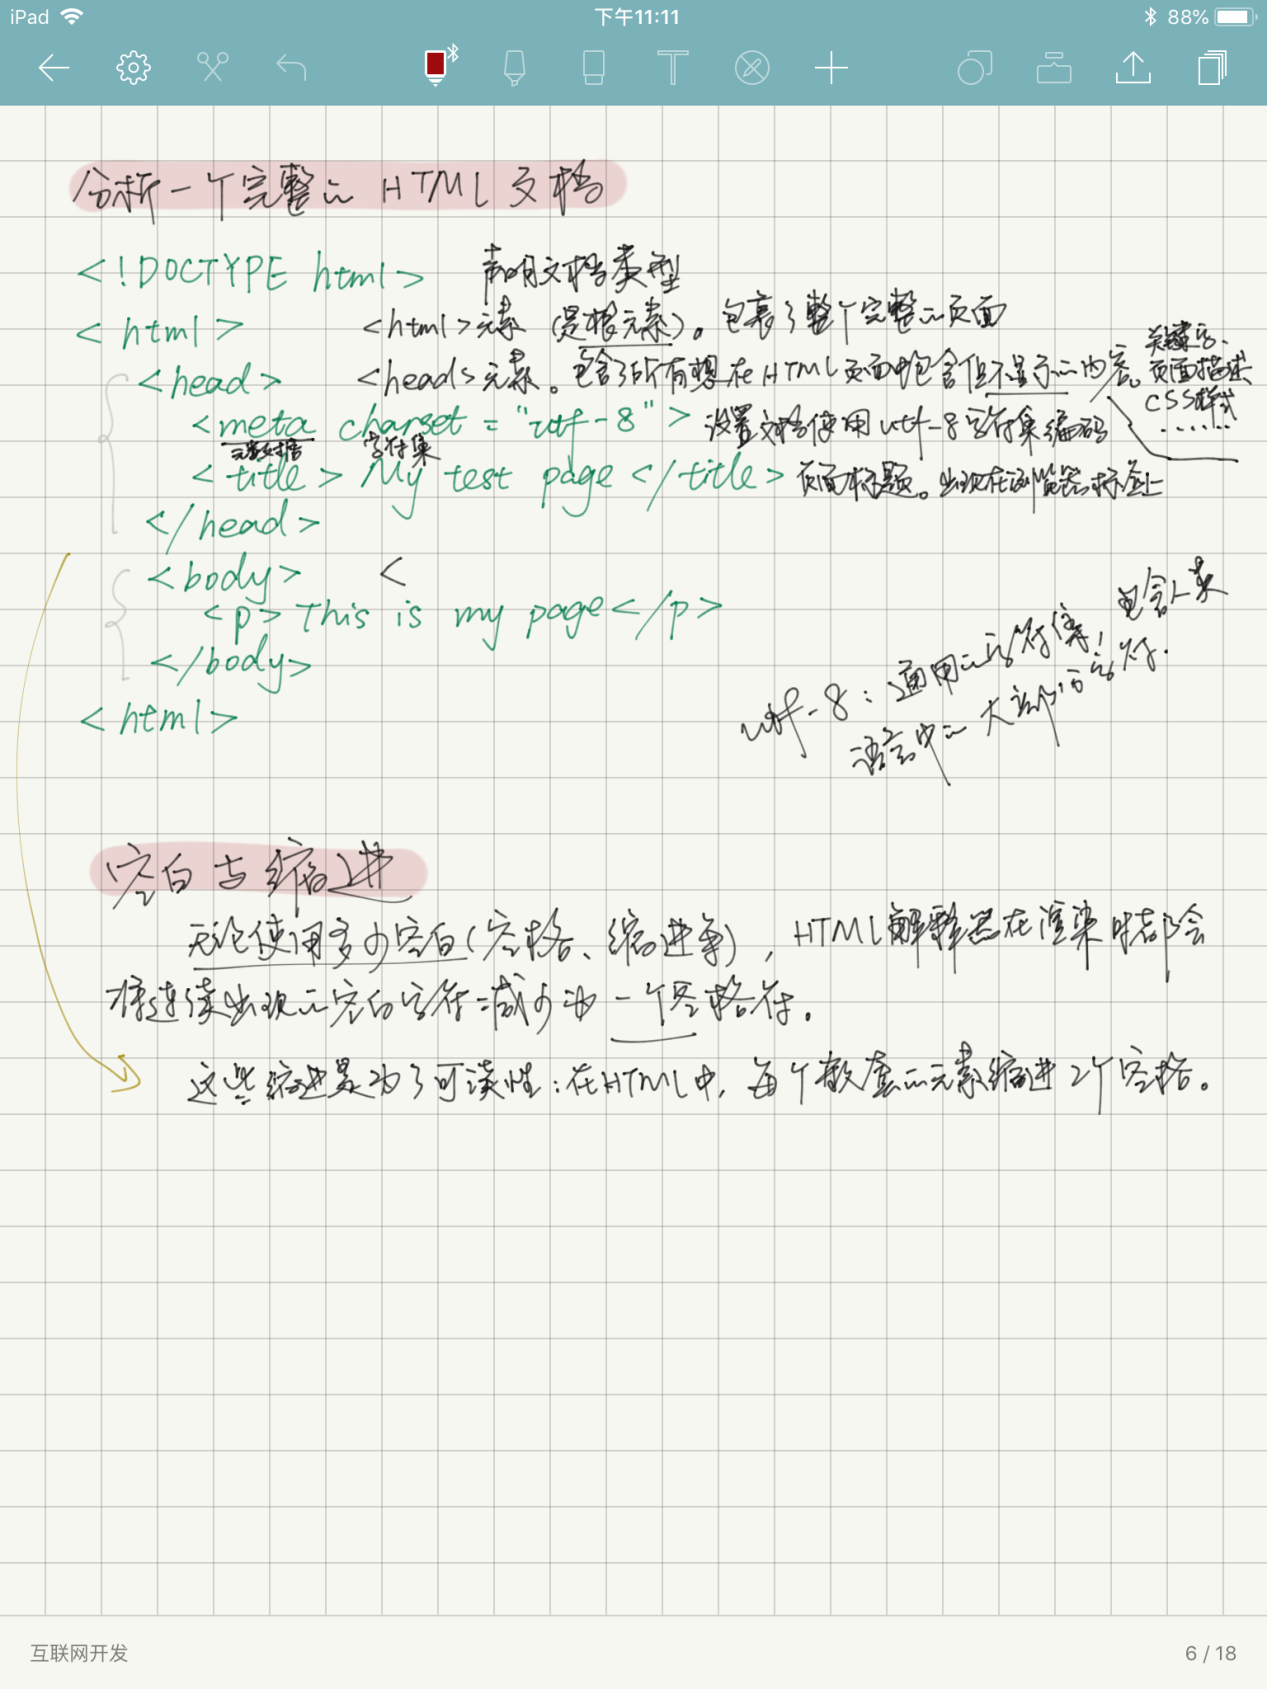 iPad 下午11:11 88%
分析一个完整的 HTML 文档
<!DOCTYPE html> 声明文档类型
<html> <html>元素 (是根元素)。包裹了整个完整的页面
<head> <head>元素。包含了所有想在HTML页面中包含但不显示的内容。
关键字、
页面描述
CSS样式
......
<meta charset = "utf-8"> 设置文档使用utf-8字符集编码
元数据 字符集
<title> My test page </title> 页面标题。出现在浏览器标签上
</head>
<body> <
<p> This is my page</p>
</body>
<html>
utf-8:通用的字符集!包含人类
语言中的大部分字符.
空白与缩进
无论使用多少空白(空格、缩进等),HTML解释器在渲染时都会
将连续出现的空白字符减少为一个空格符。
这些缩进是为了可读性:在HTML中,每个嵌套的元素缩进2个空格。
互联网开发 6 / 18